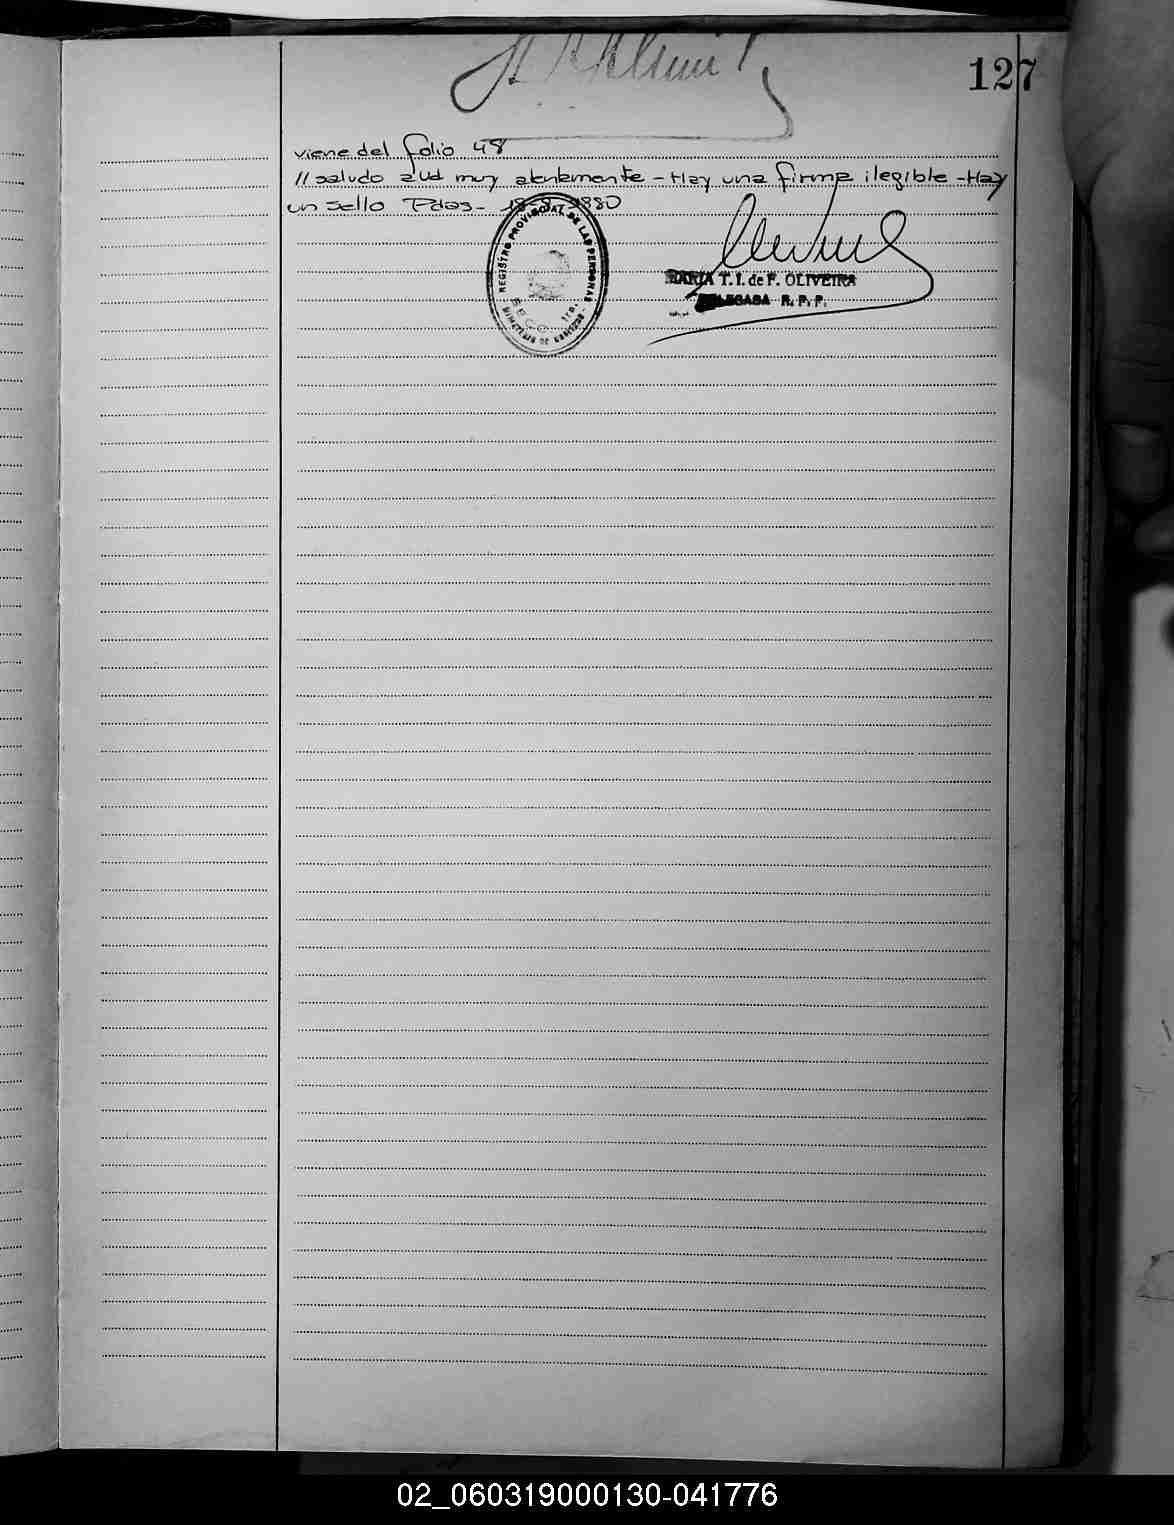 127
viene del folio 48
// saludo a Ud muy atentamente - Hay una firma ilegible - Hay
un sello Pdas -
REGISTRO PROVINCIAL DE LAS PERSONAS
MINISTERIO DE GOBIERNO
MARIA T. I. de F. OLIVEIRA
DELEGADA R. P. P.
02_060319000130-041776